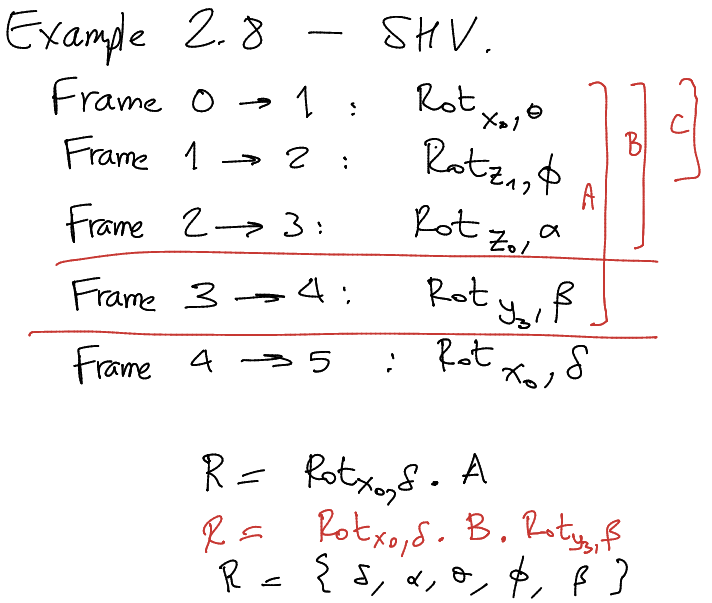 Example 2.8 – SHV.
Frame 0 → 1 : Rot x₀, θ
Frame 1 → 2 : Rot z₁, ϕ
Frame 2 → 3 : Rot z₀, α
Frame 3 → 4 : Rot y₃, β
Frame 4 → 5 : Rot x₀, δ
A
B
C
R = Rot x₀, δ . A
R = Rot x₀, δ . B . Rot y₃, β
R = { δ, α, θ, ϕ, β }